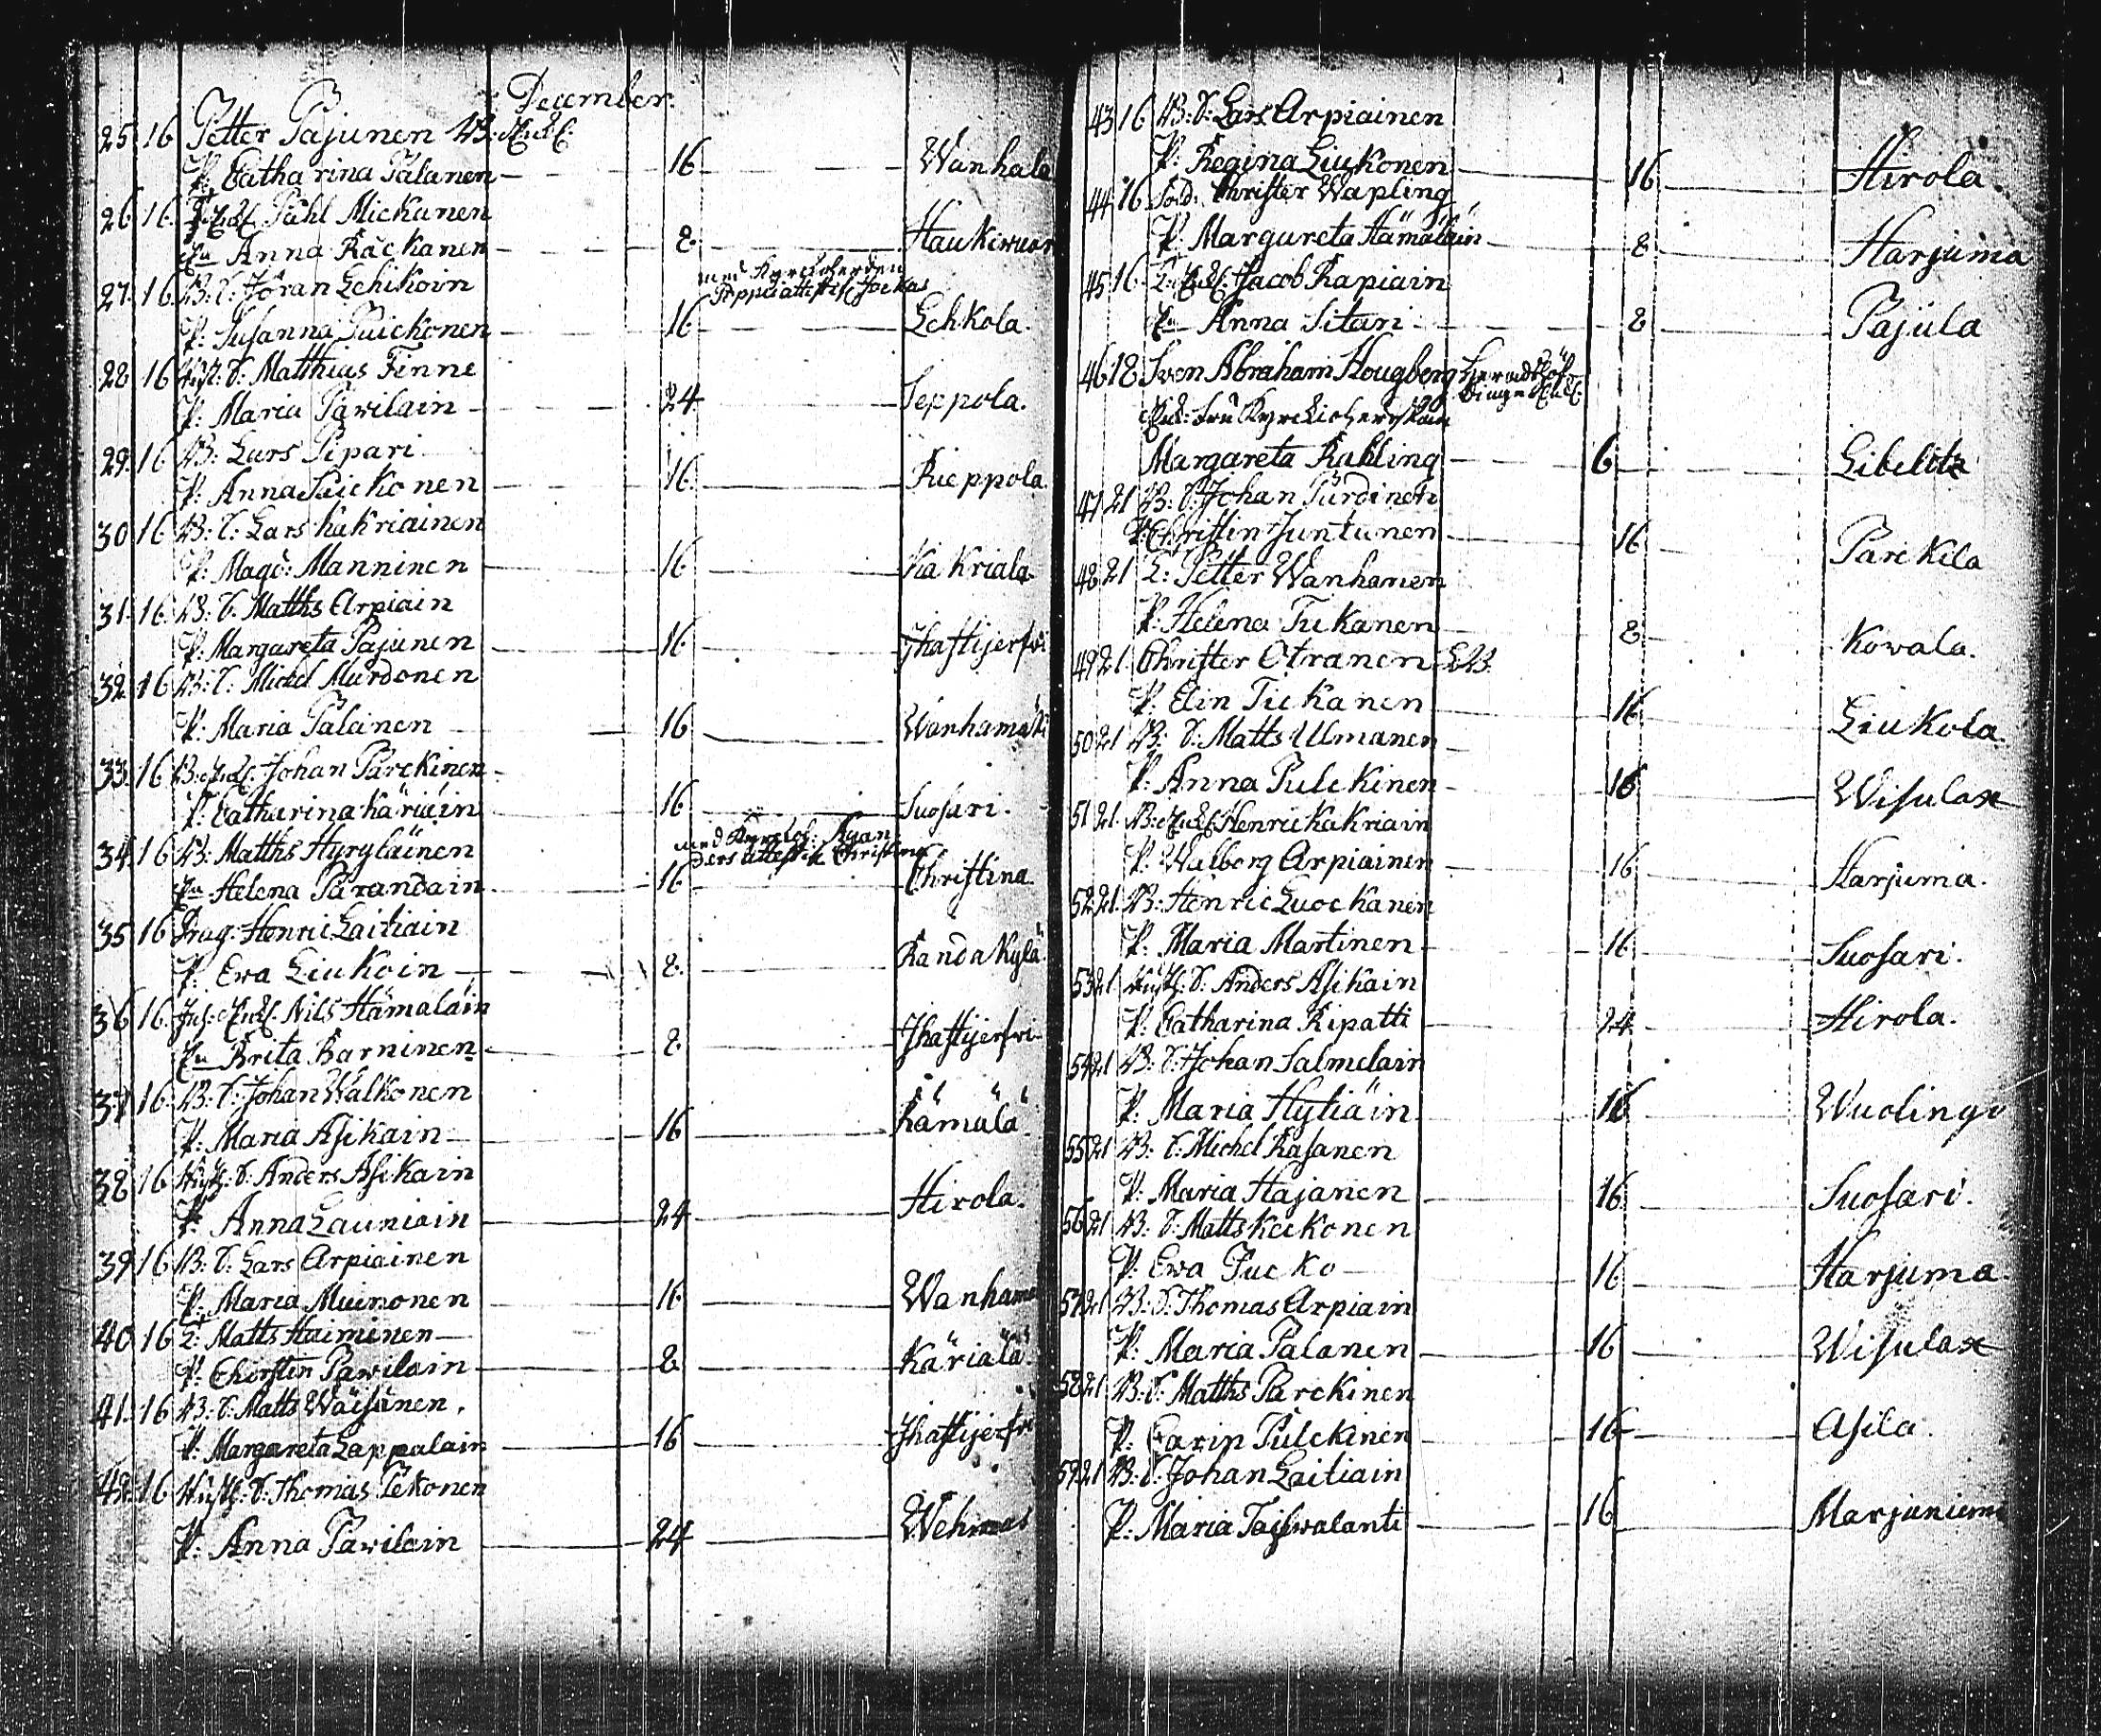 December.
25. 16 Petter Pajunen B: Enkl:
P: Catharina Palanen 16 Wanhala
26. 16. Påhl Mickanen
Anna Räckanen 8. Haukiwuor
27. 16. B: D: Jöran Lehikoin med
attest Jockas
P: Susanna Puickonen 16 Lehkola.
28 16 D: Matthias Finne
P: Maria Pawilain 24 Seppola.
29. 16 B: Lars Pipari
P: Anna Puickonen 16. Rieppola.
30 16 B: D: Lars Kakriainen
P: Magd: Manninen 16 Kakriala.
31. 16. B: D. Matths Arpiain
P: Margareta Pajunen 16.
32. 16 B: D: Michel Murdonen
P: Maria Palainen 16 Wanhamäki
33. 16 B: Enkl: Johan Parckinen
P. Catharina Käriäin 16 Suosari.
34. 16 B: Matths Hyryläinen med
attest ifr. Christina
Helena Parandain 16 Christina
35 16 Drag: Henric Laitiain
P: Ewa Liukoin 8. Randakylä.
36 16. Enkl. Nils Hämäläin
Brita Barninen 8.
37 16. B: D: Johan Walkonen
P: Maria Asikain 16 Kämälä
38 16 D: Anders Asikain
P. Anna Launiain 24 Hirola.
39. 16 B: D: Lars Arpiainen
P: Maria Muinonen 16. Wanhamä
40. 16 Matts Haiminen
P. Christin Pawilain 8. Käriälä.
41. 16 B: D. Matts Wäisänen.
P: Margareta Lappalain 16
42. 16 D: Thomas Pekonen
P: Anna Pawilain 24 Wehmas
43 16 B: D: Lars Arpiainen
P: Regina Liukonen 16 Hirola.
44 16 Sold: Christer Wapling
P: Margareta Hämäläin 8 Harjuma
45 16 Enkl: Jacob Rapiain
Anna Sitari 8 Pajula
46 18 Sven Abraham Hougberg Heradshöf
dinge
Enk: Fru Kyrckioherskan
Margareta Kahling 6 Libelitz
47 21 B: D: Johan Purdinen
P: Christin Juntunen 16 Parckila
48 21 Petter Wanhanen
P: Helena Tukanen 8 Kowala.
49 21 Christer Otranen
P. Elin Tickanen 16 Liukola.
50 21 B: D: Matts Ulmanen
P: Anna Pulckinen 16 Wisulax
51 21. B: Enkl: Henric Kakriain
P: Walborg Arpiainen 16 Harjuma.
52 21. B: Henric Luockanen
P. Maria Martinen 16 Suosari.
53 21 D: Anders Asikain
P: Catharina Ripatti 24. Hirola.
54 21 B: D: Johan Salmelain
P. Maria Hytiäin 16 Wuolingo
55 21 B: D: Michel Kasanen
P. Maria Hajanen 16 Suosari.
56 21 B: D: Matts Keckonen
P: Ewa Pucko 16 Harjuma.
57 21 B: D: Thomas Arpiain
P: Maria Palanen 16 Wisulax
58 21. B: D: Matths Parckinen
P: Carin Pulckinen 16 Asila.
59 21 B: D: Johan Laitiain
P: Maria Taiswalanti 16 Marjaniemi